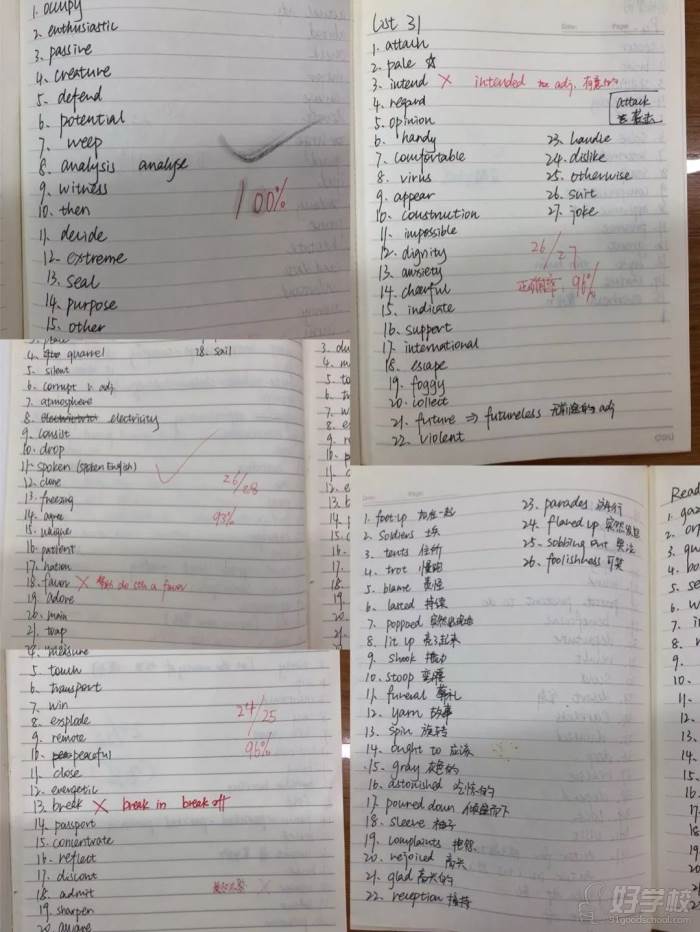 1. occupy
2. enthusiastic
3. passive
4. creature
5. defend
6. potential
7. weep
8. analysis analyse
9. witness
10. then
11. decide
12. extreme
13. seal
14. purpose
15. other
100%
List 31
1. attach
2. pale ☆
3. intend × intended adj.
4. regard
5. opinion
attack
6. handy
7. comfortable
8. virus
9. appear
10. construction
11. impossible
12. dignity
13. anxiety
14. cheerful
15. indicate
16. support
17. international
18. escape
19. foggy
20. collect
21. future ⇒ futureless adj
22. violent
23. handle
24. dislike
25. otherwise
26. suit
27. joke
26/27
正确率 96%
4. quarrel
5. silent
6. corrupt v. adj.
7. atmosphere
8. electricity
9. consist
10. drop
11. spoken (spoken English)
12. clone
13. freezing
14. agree
15. unique
16. patient
17. nation
18. favor × do sth a favor
19. adore
20. main
21. trap
22. measure
28. sail
26/28
93%
5. touch
6. transport
7. win
8. explode
9. remote
10. peaceful
11. close
12. energetic
13. break × break in break off
14. passport
15. concentrate
16. reflect
17. discont
18. admit
19. sharpen
20. aware
24/25
96%
1. foot-up 加在一起
2. soldiers 士兵
3. tents 住所
4. trot 慢跑
5. blame 责怪
6. lasted 持续
7. poppaed
8. lit up 亮了起来
9. shook
10. stoop 弯腰
11. funeral 葬礼
12. yarn 故事
13. spin 旋转
14. ought to 应该
15. gray 灰色的
16. astonished 吃惊的
17. poured down 倾盆而下
18. sleeve 袖子
19. complaints 抱怨
20. rejoiced 高兴
21. glad 高兴的
22. reception 接待
23. parades 游行
24. flared up 突然发怒
25. sobbing out 哭泣
26. foolishness 可笑
Read
好学校
91goodschool.com